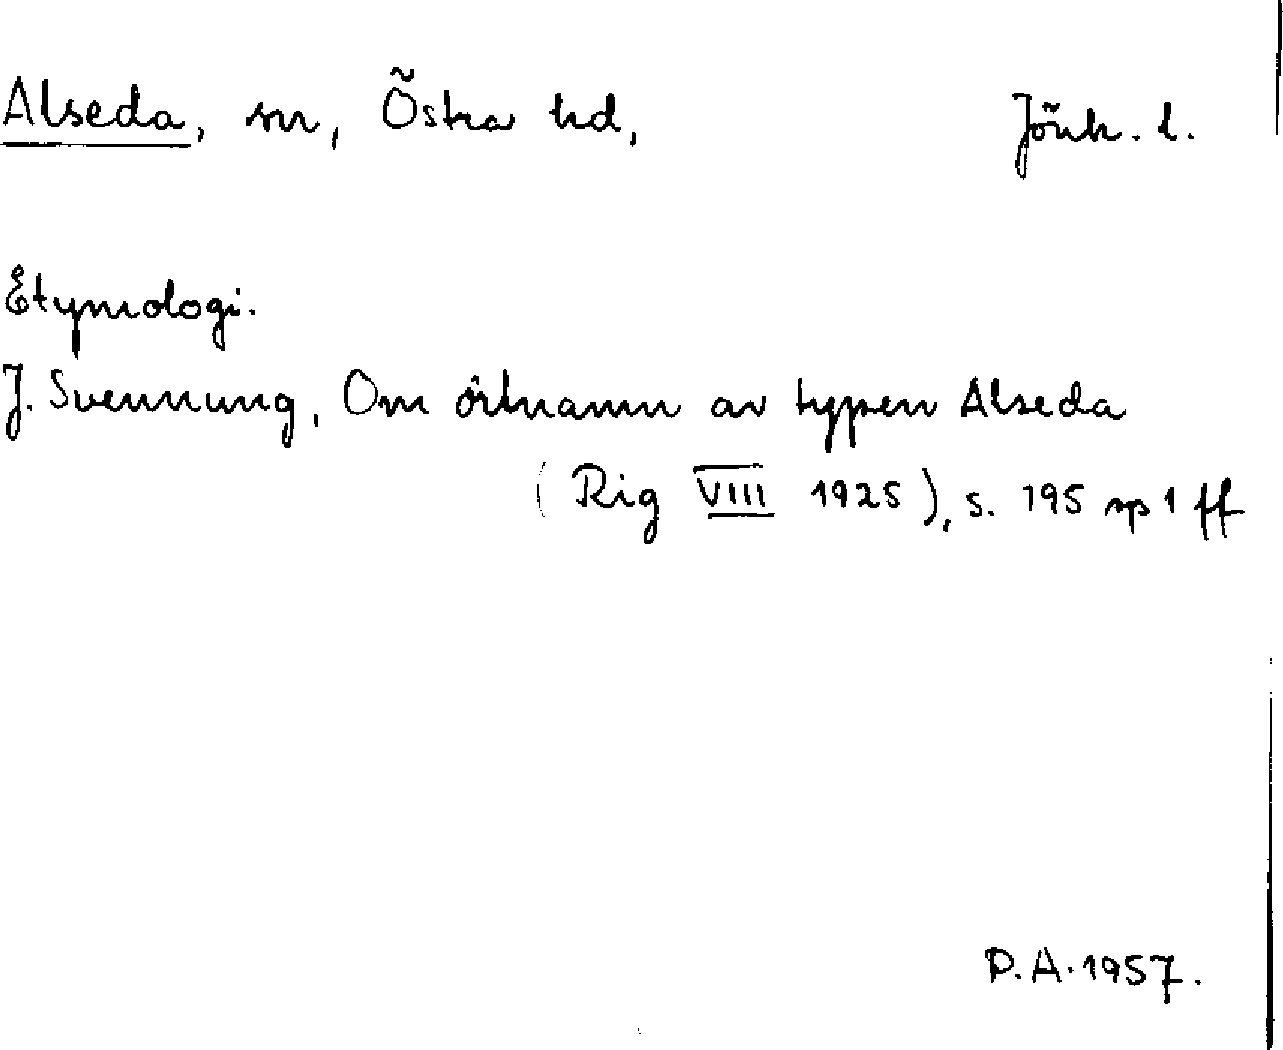 Alseda, sn, Östra hd, Jönk. l.
Etymologi.
J. Svennung, Om ortnamn av typen Alseda
(Rig VIII 1925), s. 195 sp 1 ff
P.A. 1957.